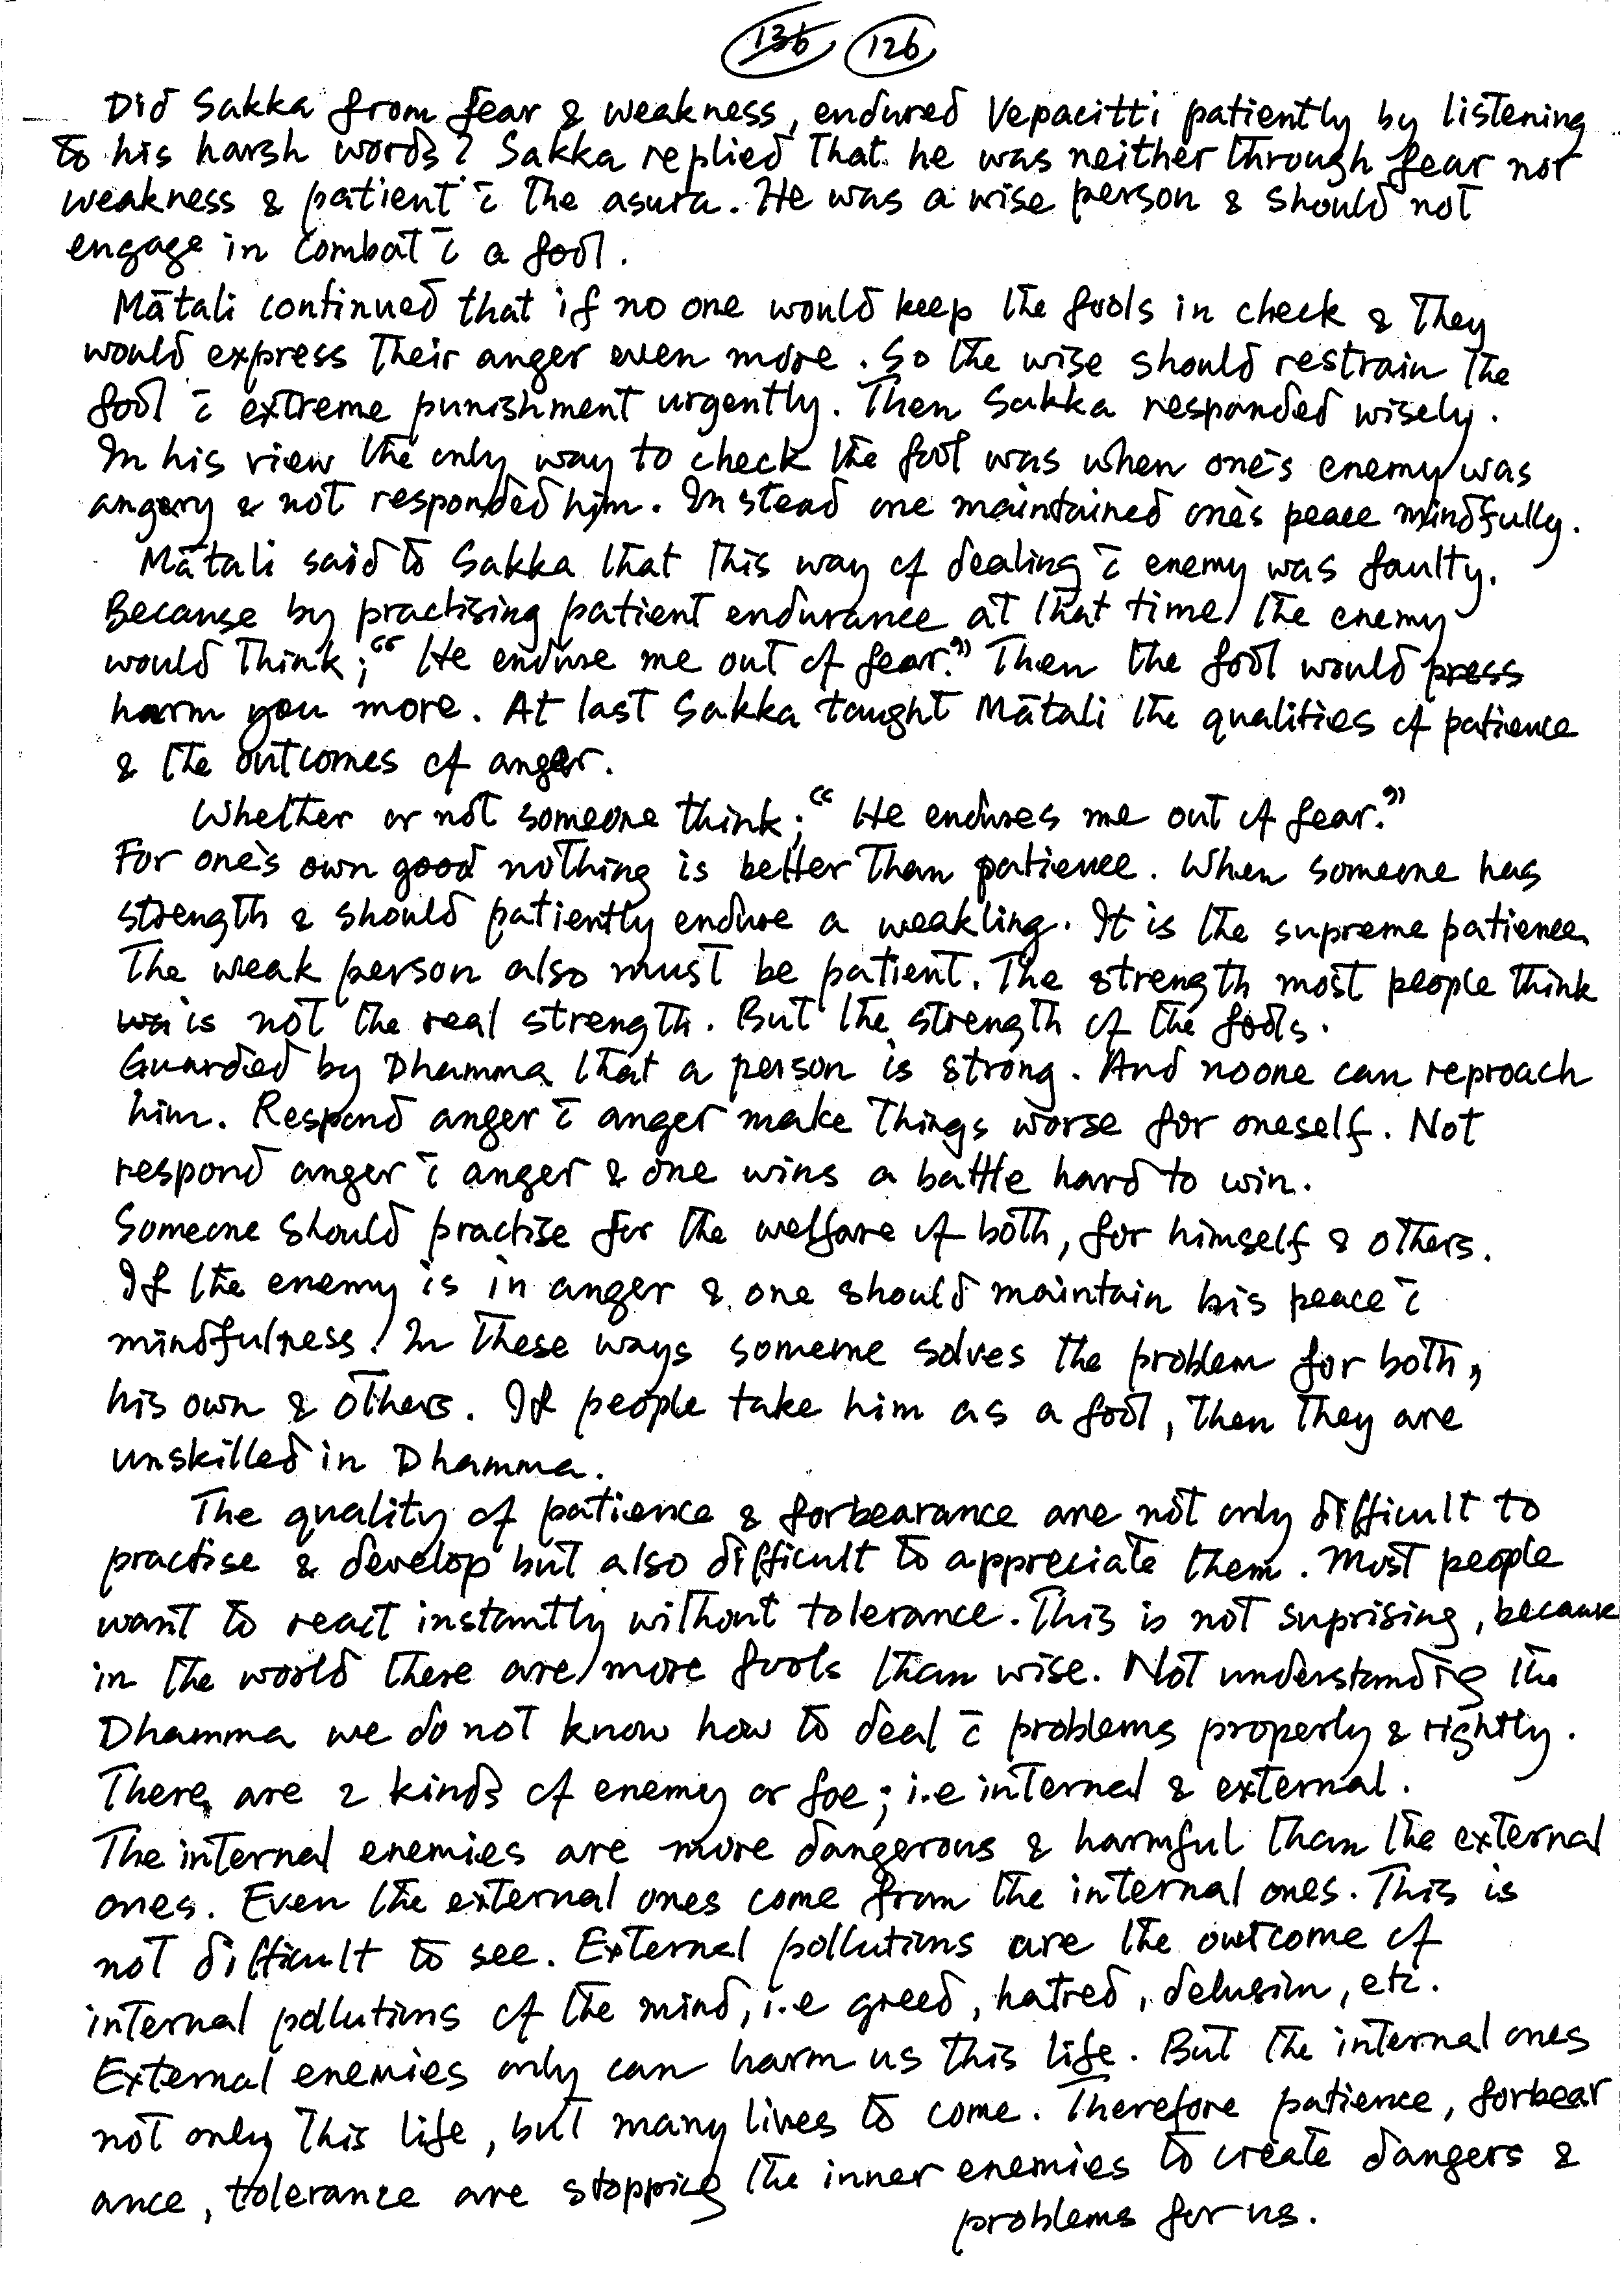 136 126
Did Sakka from fear & weakness, endured Vepacitti patiently by listening
to his harsh words? Sakka replied that he was neither through fear nor
weakness & patient c̄ the asura. He was a wise person & should not
engage in combat c̄ a fool.
Mātali continued that if no one would keep the fools in check & they
would express their anger even more. So the wise should restrain the
fool c̄ extreme punishment urgently. Then Sakka responded wisely.
In his view the only way to check the fool was when one's enemy was
angery & not responded him. In stead one maintained one's peace mindfully.
Mātali said to Sakka that this way of dealing c̄ enemy was faulty.
Because by practising patient endurance at that time, the enemy
would think; "He endure me out of fear." Then the fool would press
harm you more. At last Sakka taught Mātali the qualities of patience
& the outcomes of anger.
Whether or not someone think; "He endures me out of fear."
For one's own good nothing is better than patience. When someone has
strength & should patiently endure a weakling. It is the supreme patience.
The weak person also must be patient. The strength most people think
wa is not the real strength. But the strength of the fools.
Guarded by Dhamma that a person is strong. And noone can reproach
him. Respond anger c̄ anger make things worse for oneself. Not
respond anger c̄ anger & one wins a battle hard to win.
Someone should practise for the welfare of both, for himself & others.
If the enemy is in anger & one should maintain his peace c̄
mindfulness. In these ways someone solves the problem for both,
his own & others. If people take him as a fool, then they are
unskilled in Dhamma.
The quality of patience & forbearance are not only difficult to
practise & develop but also difficult to appreciate them. Most people
want to react instantly without tolerance. This is not suprising, because
in the world there are more fools than wise. Not understanding the
Dhamma we do not know how to deal c̄ problems properly & rightly.
There are 2 kinds of enemy or foe; i.e internal & external.
The internal enemies are more dangerous & harmful than the external
ones. Even the external ones come from the internal ones. This is
not difficult to see. External pollutions are the outcome of
internal pollutions of the mind, i.e greed, hatred, delusion, etc.
External enemies only can harm us this life. But the internal ones
not only this life, but many lives to come. Therefore patience, forbear
ance, tolerance are stopping the inner enemies to create dangers &
problems for us.